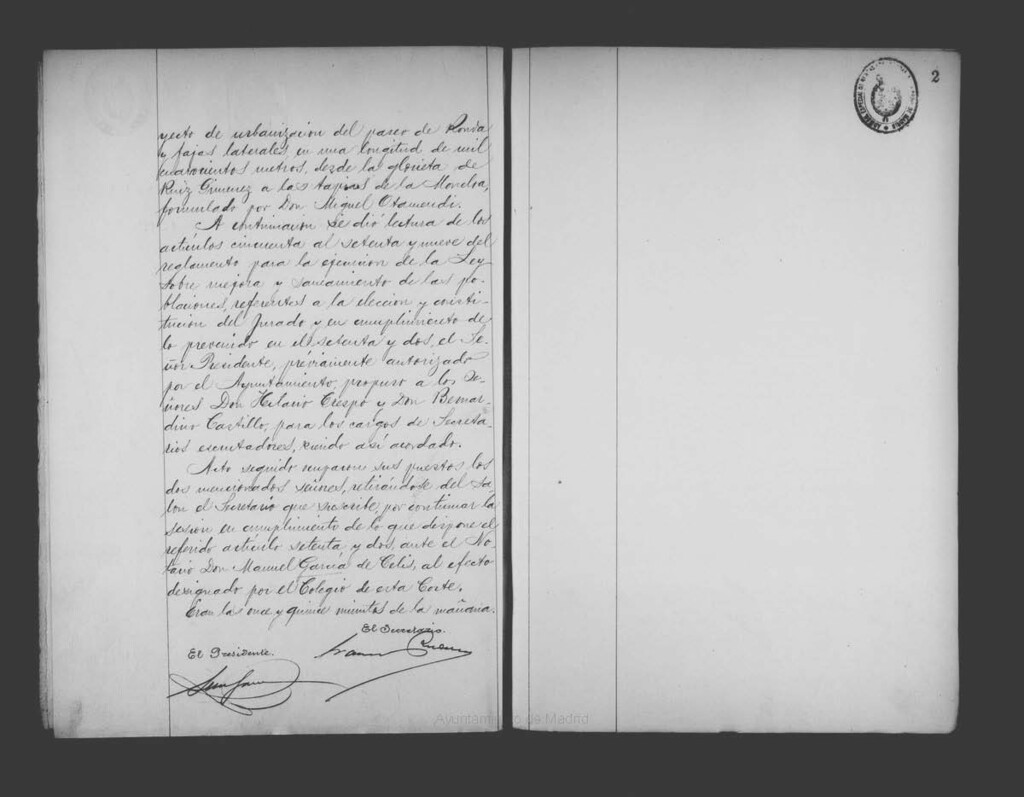 yecto de urbanizacion del paseo de Ronda
y fajas laterales, en una longitud de mil
cuatrocientos metros, desde la glorieta de
Ruiz Gimenez a las tapias de la Moncloa,
formulado por Don Miguel Otamendi.
A continuacion se dió lectura de los
artículos cincuenta al setenta y nueve del
reglamento para la ejecucion de la Ley
sobre mejora y saneamiento de las po-
blaciones, referentes a la eleccion y consti-
tucion del Jurado y en cumplimiento de
lo prevenido en el setenta y dos, el Se-
ñor Presidente, préviamente autorizado
por el Ayuntamiento, propuso a los Se-
ñores Don Hilario Crespo y Don Bernar-
dino Castillo, para los cargos de Secreta-
rios escrutadores, siendo así acordado.
Acto seguido ocuparon sus puestos los
dos mencionados señores, retirándose del Sa-
lon el Secretario que suscribe, por continuar la
sesion en cumplimiento de lo que dispone el
referido artículo setenta y dos, ante el No-
tario Don Manuel García de Celis, al efecto
designado por el Colegio de esta Corte.
Eran las once y quince minutos de la mañana.
El Secretario.
El Presidente.
2
Ayuntamiento de Madrid